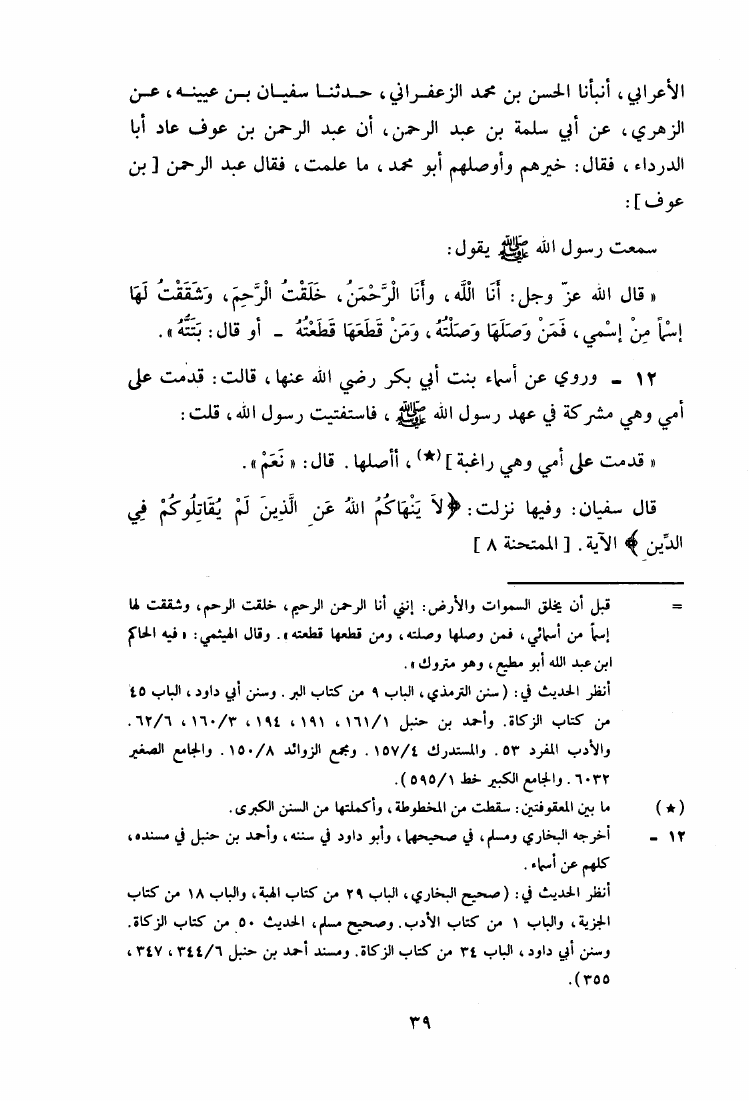 الأعرابي، أنبأنا الحسن بن محمد الزعفراني، حدثنا سفيان بن عيينه، عن
الزهري، عن أبي سلمة بن عبد الرحمن، أن عبد الرحمن بن عوف عاد أبا
الدرداء، فقال: خيرهم وأوصلهم أبو محمد، ما علمت، فقال عبد الرحمن [ بن
عوف ]:
سمعت رسول الله ﷺ يقول:
« قال الله عزّ وجل: أَنَا اللَّه، وأَنَا الْرَّحْمَنُ، خَلَقْتُ الْرَّحِمَ، وَشَقَقْتُ لَهَا
إِسْماً مِنْ إِسْمي، فَمَنْ وَصَلَهَا وَصَلْتُهُ، وَمَنْ قَطَعَهَا قَطَعْتُهُ ـ أو قال: بَتَتُّهُ ».
١٢ ـ وروي عن أسماء بنت أبي بكر رضي الله عنها، قالت: قدمت على
أمي وهي مشركة في عهد رسول الله ﷺ، فاستفتيت رسول الله، قلت:
« قدمت على أمي وهي راغبة ](★)، أأصلها. قال: « نَعَمْ ».
قال سفيان: وفيها نزلت: ﴿لاَ يَنْهَاكُمُ اللهُ عَنِ الَّذِينَ لَمْ يُقَاتِلُوكُمْ فِي
الدِّينِ﴾ الآية. [ الممتحنة ٨ ]
= قبل أن يخلق السموات والأرض: إنني أنا الرحمن الرحيم، خلقت الرحم، وشققت لها
إسماً من أسمائي، فمن وصلها وصلته، ومن قطعها قطعته». وقال الهيثمي: « فيه الحاكم
ابن عبد الله أبو مطيع، وهو متروك ».
أنظر الحديث في: (سنن الترمذي، الباب ٩ من كتاب البر. وسنن أبي داود، الباب ٤٥
من كتاب الزكاة. وأحمد بن حنبل ١٦١/١، ١٩١، ١٩٤، ١٦٠/٣، ٦٢/٦.
والأدب المفرد ٥٣. والمستدرك ١٥٧/٤. ومجمع الزوائد ١٥٠/٨. والجامع الصغير
٦٠٣٢. والجامع الكبير خط ٥٩٥/١).
(★) ما بين المعقوفتين: سقطت من المخطوطة، وأكملتها من السنن الكبرى.
١٢ ـ أخرجه البخاري ومسلم، في صحيحهما، وأبو داود في سننه، وأحمد بن حنبل في مسنده،
كلهم عن أسماء.
أنظر الحديث في: (صحيح البخاري، الباب ٢٩ من كتاب الهبة، والباب ١٨ من كتاب
الجزية، والباب ١ من كتاب الأدب. وصحيح مسلم، الحديث ٥٠ من كتاب الزكاة.
وسنن أبي داود، الباب ٣٤ من كتاب الزكاة. ومسند أحمد بن حنبل ٣٤٤/٦، ٣٤٧،
٣٥٥).
٣٩